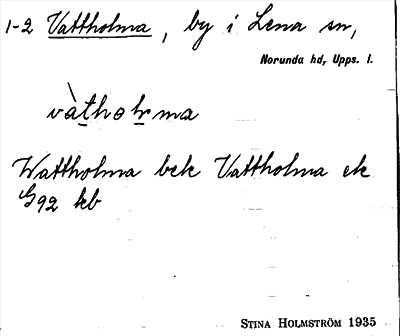 1-2 Vattholma, by i Lena sn,
Norunda hd, Upps. l.
vàthohrma
Wattholma bek Vattholma ek
G92 kb
STINA HOLMSTRÖM 1935